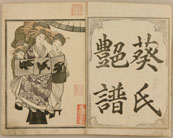 葵氏
艶譜